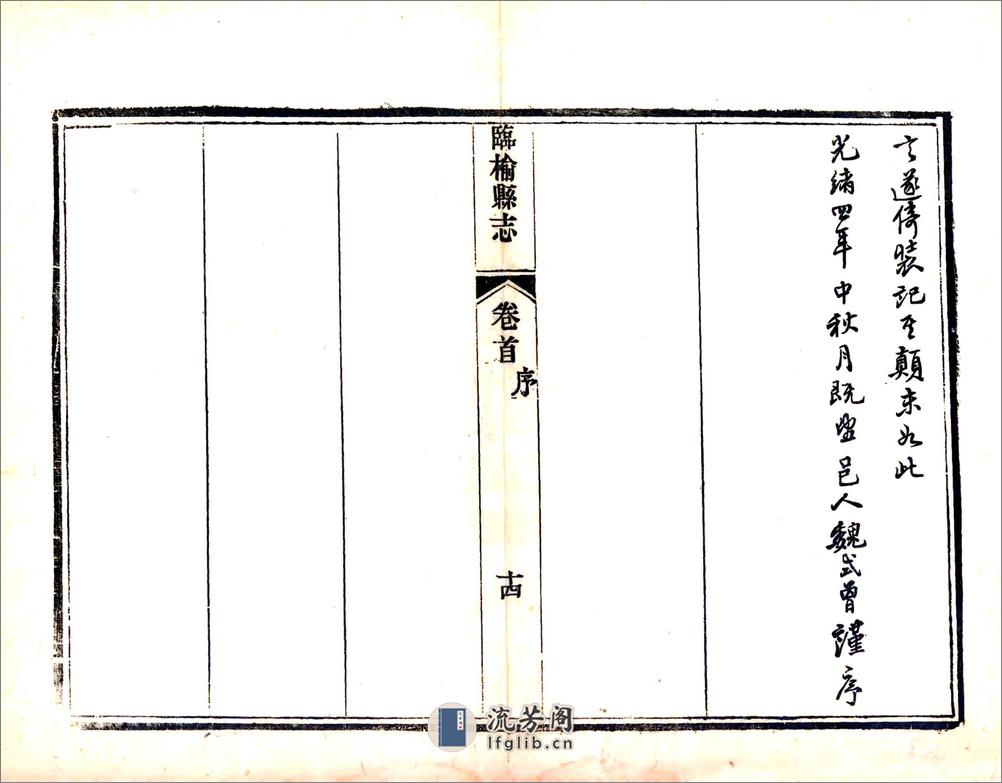 言遂倚裝記其顛末如此
光緒四年中秋月既望邑人魏式曾謹序
臨榆縣志
卷首
序
十四
流芳阁
lfglib.cn